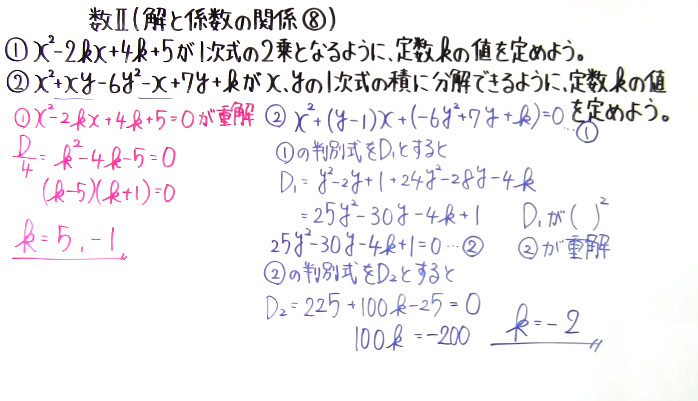 数Ⅱ(解と係数の関係⑧)
①x²-2kx+4k+5が1次式の2乗となるように、定数kの値を定めよう。
②x²+xy-6y²-x+7y+kがx、yの1次式の積に分解できるように、定数kの値を定めよう。
①x²-2kx+4k+5=0が重解
D/4=k²-4k-5=0
(k-5)(k+1)=0
k=5,-1
②x²+(y-1)x+(-6y²+7y+k)=0…①
①の判別式をD₁とすると
D₁=y²-2y+1+24y²-28y-4k
=25y²-30y-4k+1 D₁が( )²
25y²-30y-4k+1=0…② ②が重解
②の判別式をD₂とすると
D₂=225+100k-25=0
100k=-200 k=-2